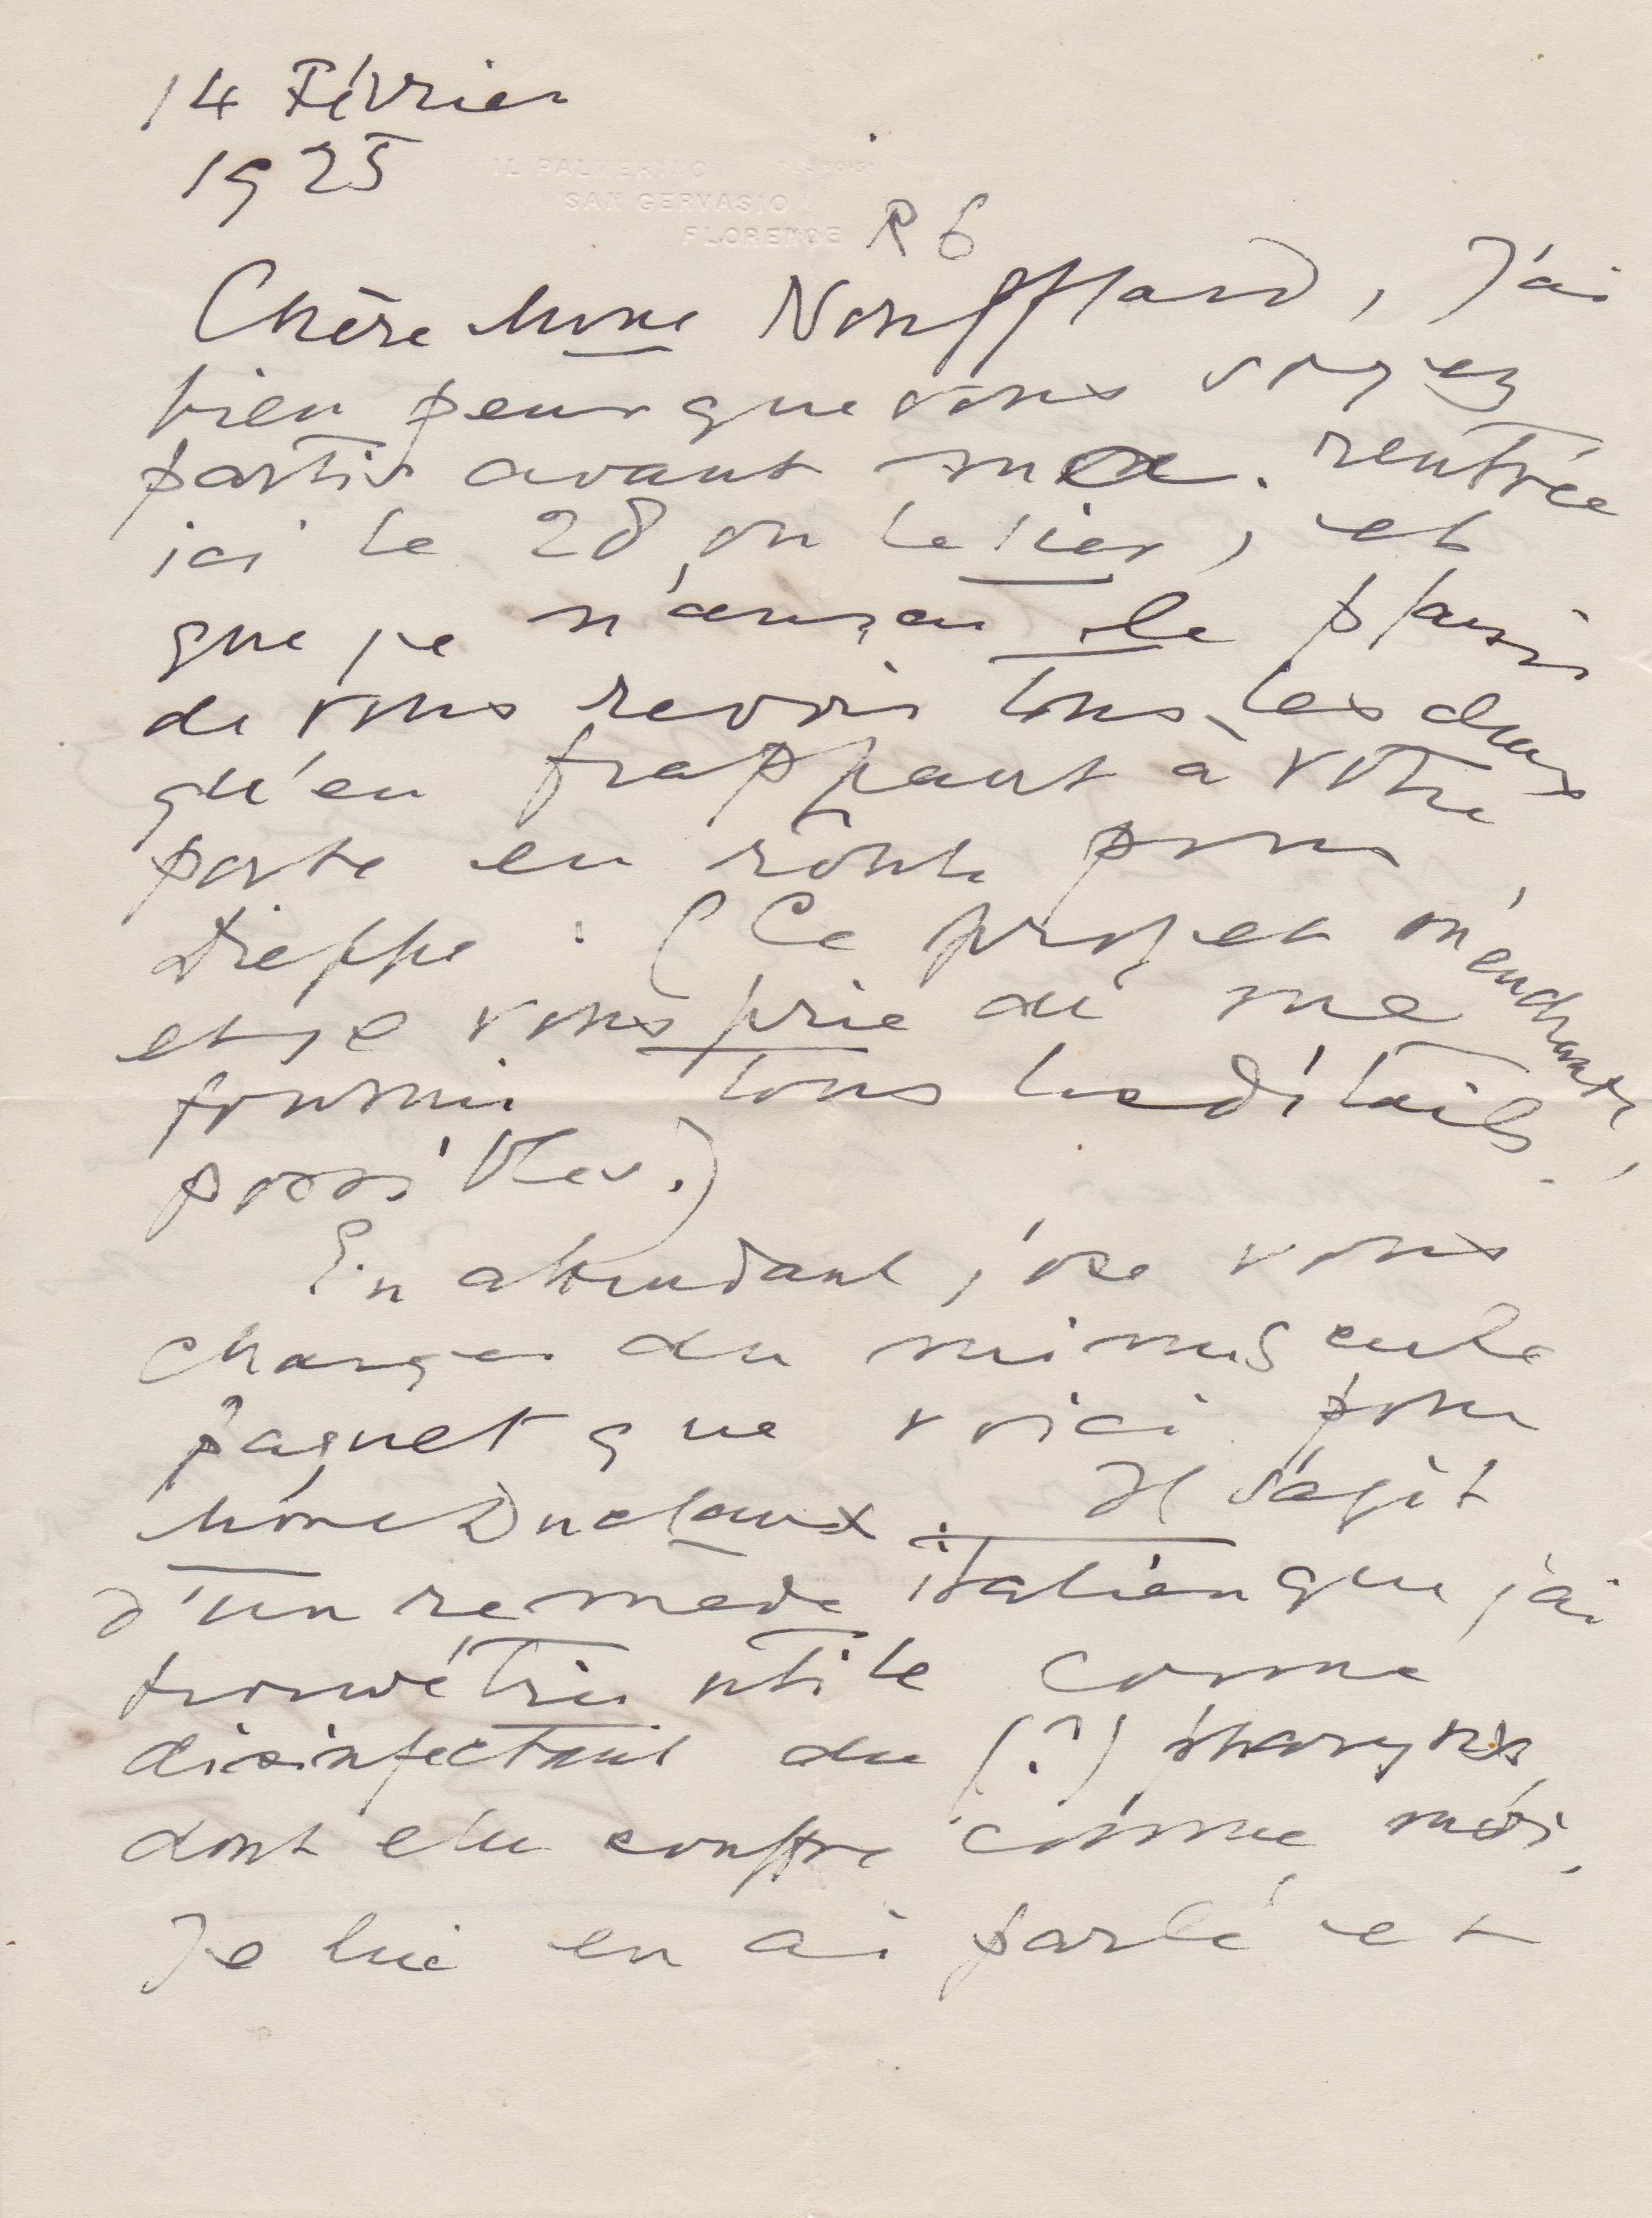 14 Février
1925
IL PALMERINO
SAN GERVASIO
FLORENCE
R 6
Chère Mme Noufflard, J'ai
bien peur que vous soyez
partis avant ma rentrée
ici le 28 ou le 1ier, et
que je n'aurai le plaisir
de vous revoir tous les deux
qu'en frappant à votre
porte en route pour
Dieppe. (Ce projet m'enchante,
et je vous prie de me
fournir tous les détails
possibles.)
En attendant j'ose vous
charger du minuscule
paquet que voici pour
Mme Duclaux. Il s'agit
d'un remède italien que j'ai
trouvé très utile comme
disinfectant du (?) pharynx
dont elle souffre comme moi.
Je lui en ai parlé et